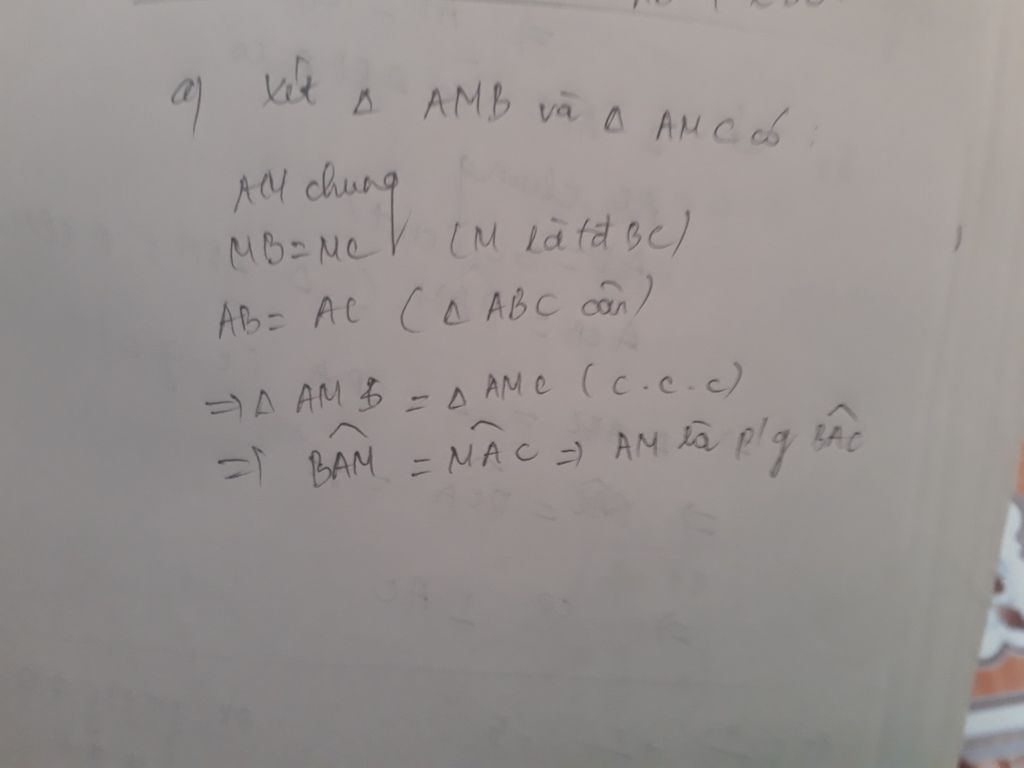 a) Xét Δ AMB và Δ AMC có :
AM chung
MB = MC (M là tđ BC)
AB = AC ( Δ ABC cân)
=> Δ AMB = Δ AMC ( c . c . c)
=> \widehat{BAM} = \widehat{MAC} => AM là p/g \widehat{BAC}